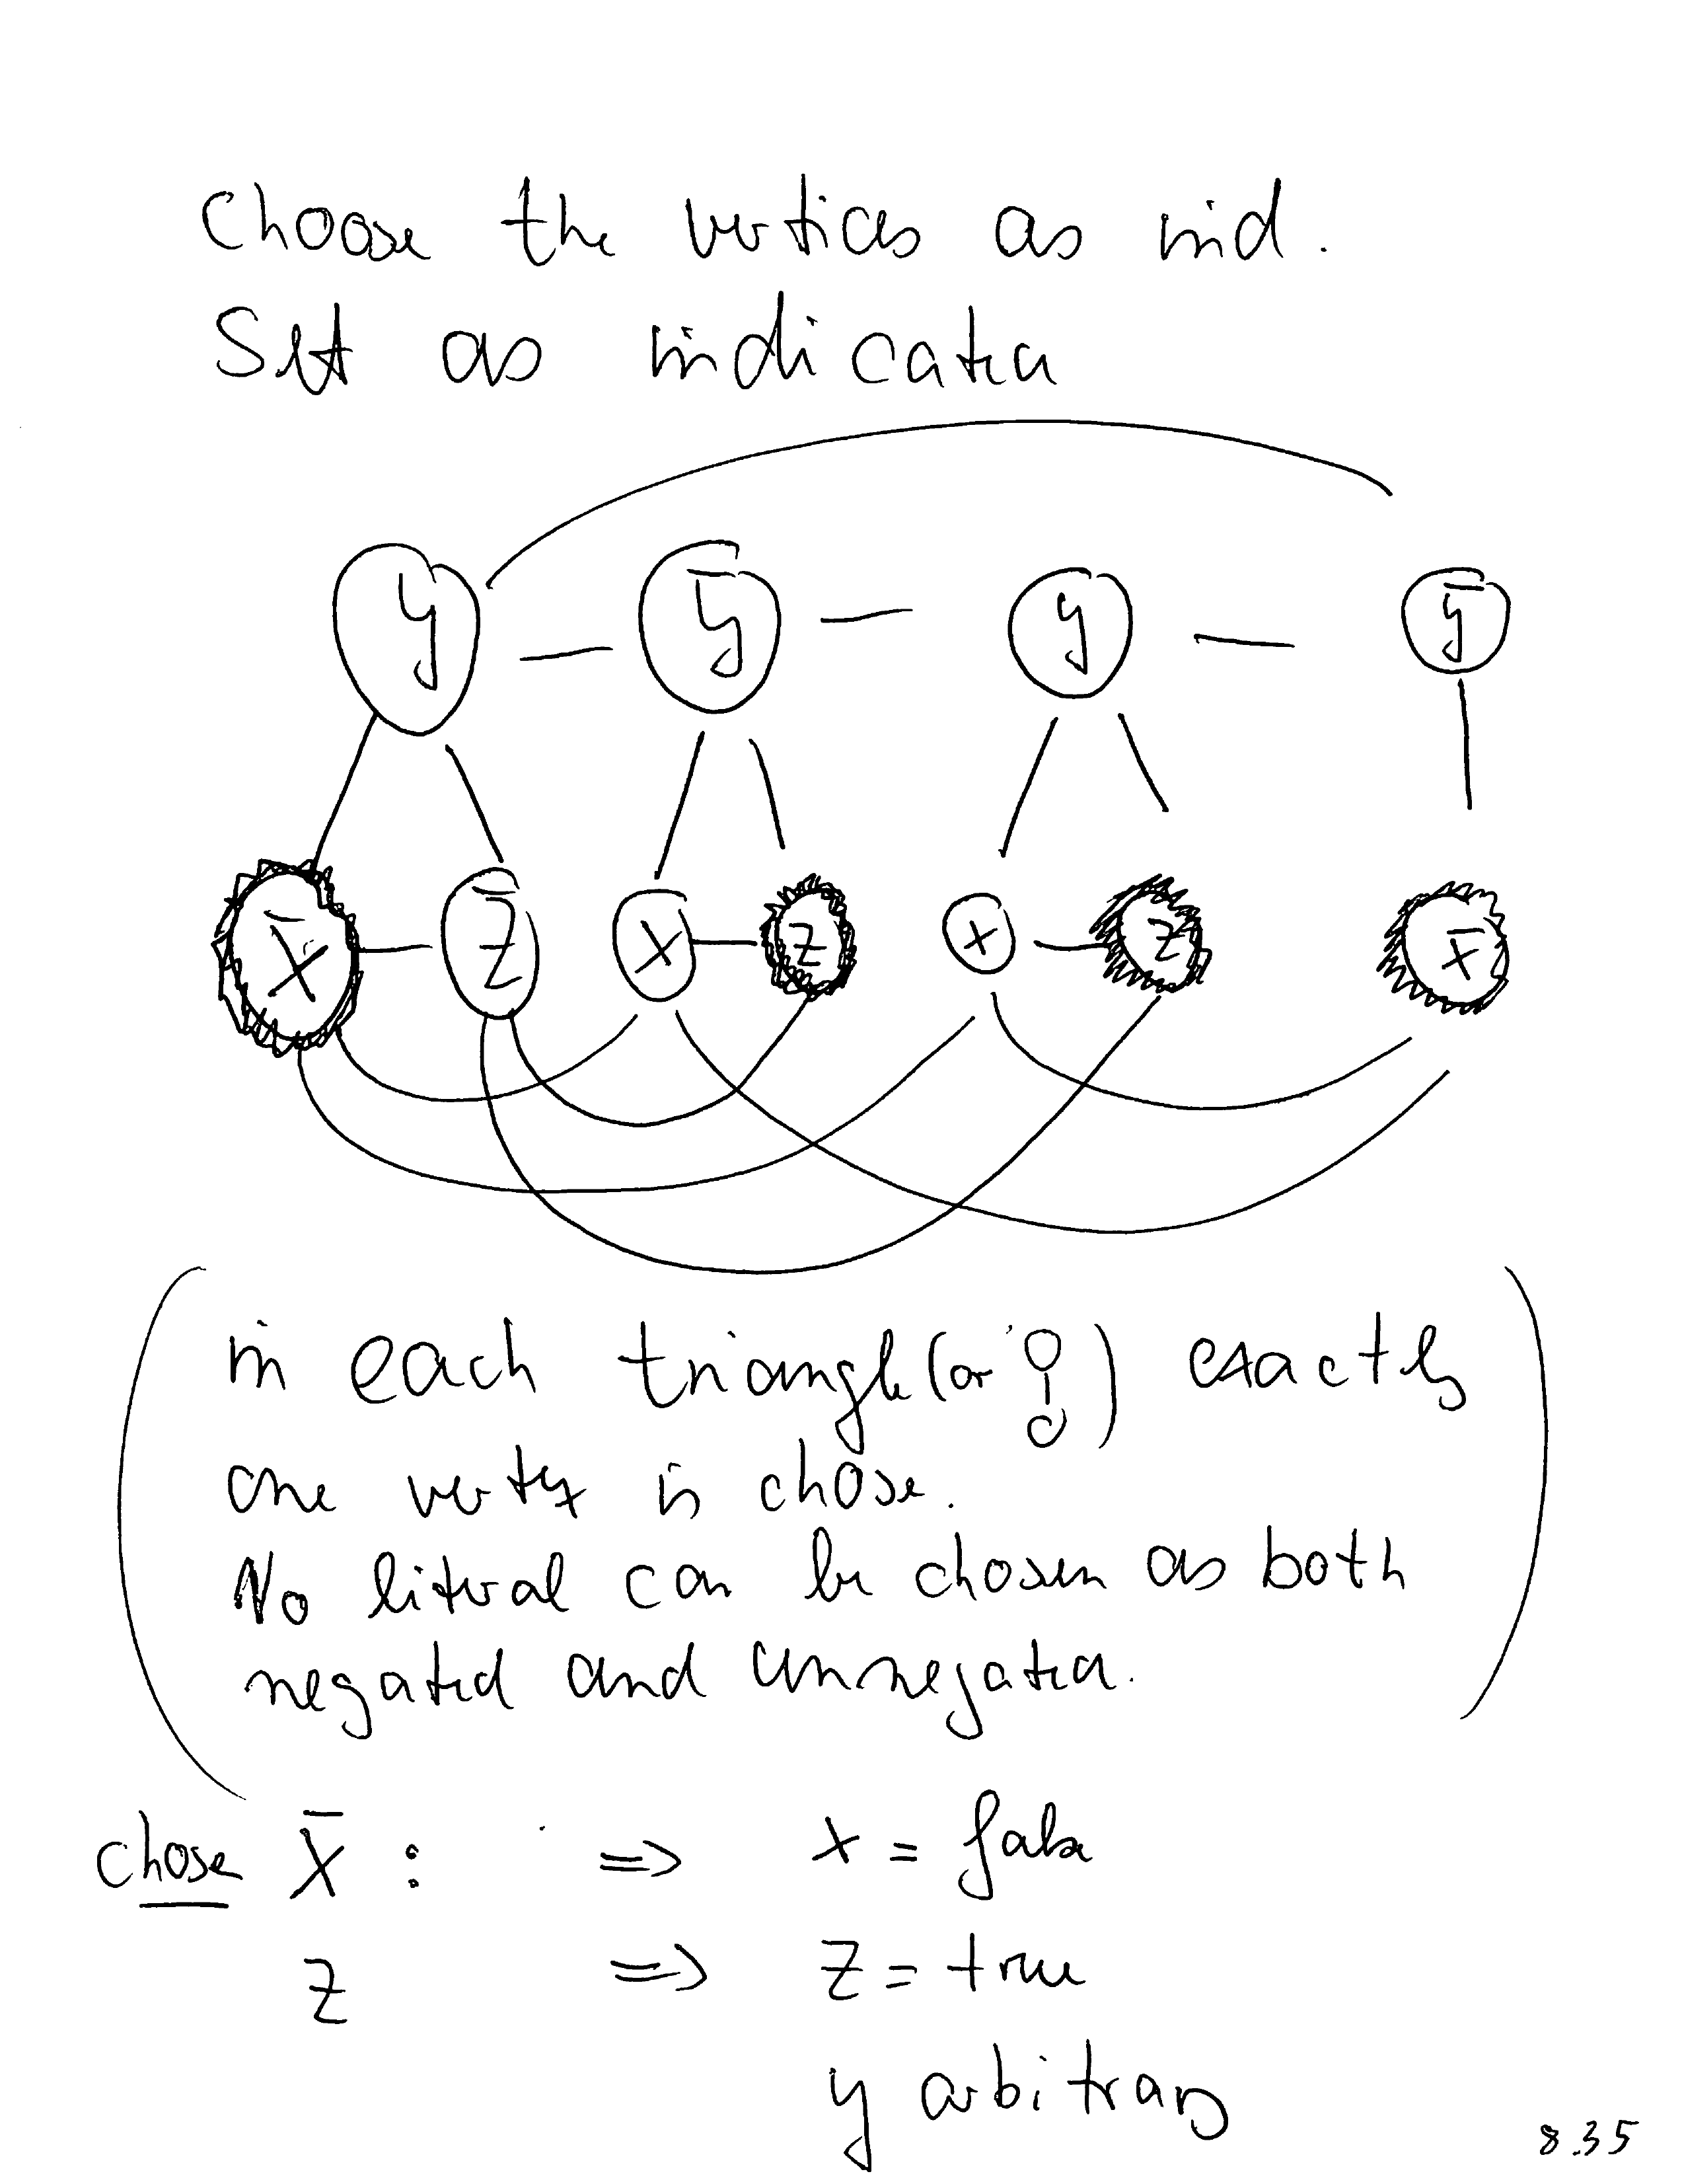 Choose the vertices as ind.
Set as indicated
y ȳ y ȳ
x̄ z̄ x z x z x̄
in each triangle (or ) exactly
one vertex is chose.
No literal can be chosen as both
negated and unnegated.
chose x̄ : => x = false
z => z = true
y arbitrary
8.35